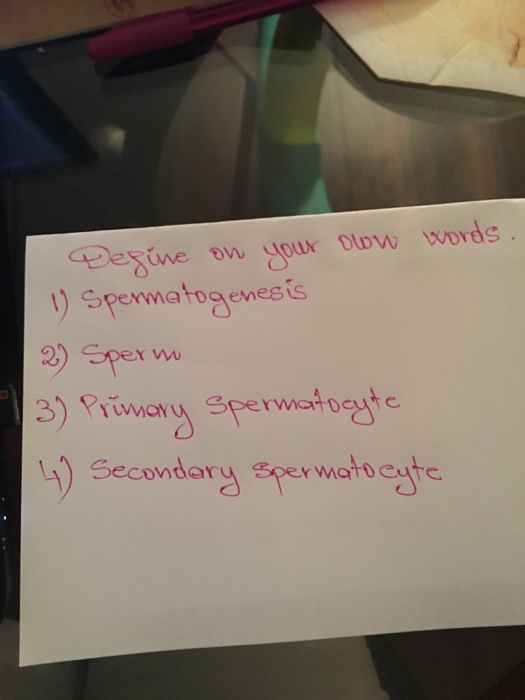 Define on your own words.
1) Spermatogenesis
2) Sperm
3) Primary Spermatocyte
4) Secondary Spermatocyte